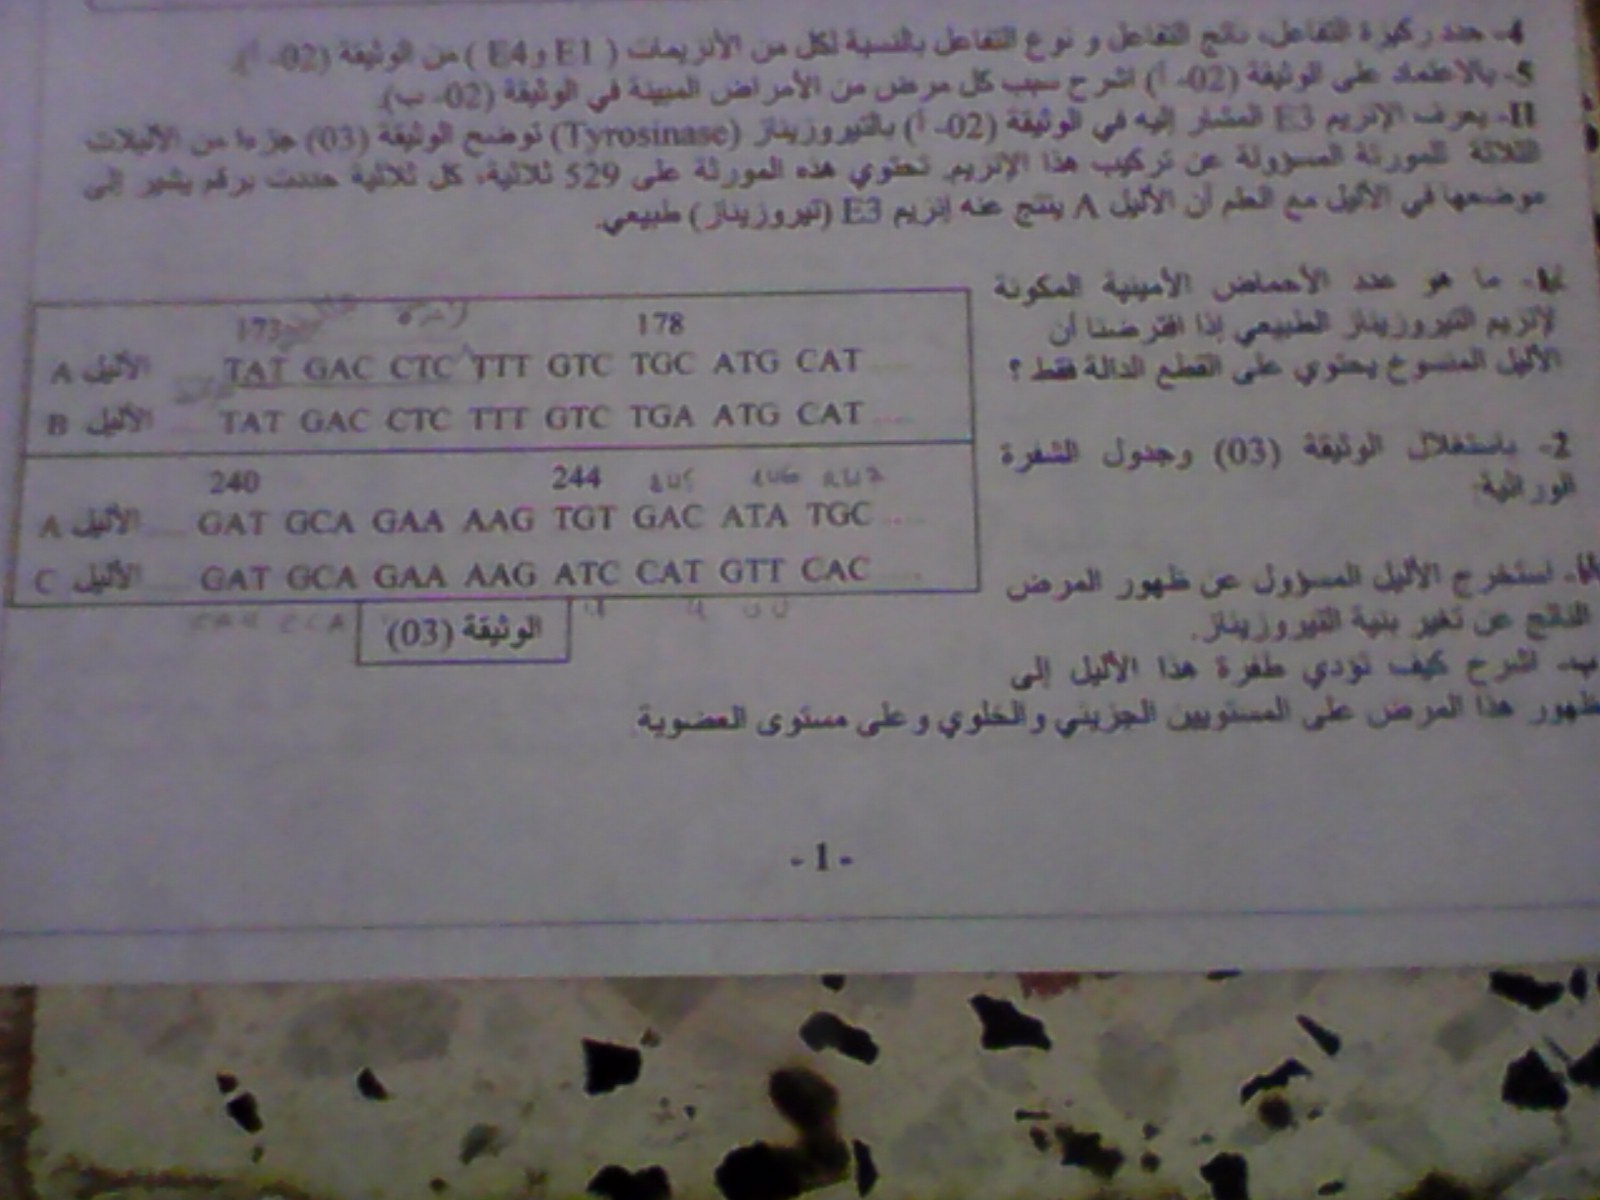 4- حدد ركيزة التفاعل، ناتج التفاعل و نوع التفاعل بالنسبة لكل من الأنزيمات ( E1 و E4 ) من الوثيقة (02- أ).
5- بالاعتماد على الوثيقة (02- أ) اشرح سبب كل مرض من الأمراض المبينة في الوثيقة (02- ب).
II- يعرف الإنزيم E3 المشار إليه في الوثيقة (02- أ) بالتيروزيناز (Tyrosinase) توضح الوثيقة (03) جزءا من الأليلات
الثلاثة للمورثة المسؤولة عن تركيب هذا الإنزيم. تحتوي هذه المورثة على 529 ثلاثية، كل ثلاثية حددت برقم يشير إلى
موضعها في الأليل مع العلم أن الأليل A ينتج عنه إنزيم E3 (تيروزيناز) طبيعي.
1- ما هو عدد الأحماض الأمينية المكونة
لإنزيم التيروزيناز الطبيعي إذا افترضنا أن
الأليل المنسوخ يحتوي على القطع الدالة فقط ؟
2- باستغلال الوثيقة (03) وجدول الشفرة
الوراثية:
أ- استخرج الأليل المسؤول عن ظهور المرض
الناتج عن تغير بنية التيروزيناز.
ب- اشرح كيف تؤدي طفرة هذا الأليل إلى
ظهور هذا المرض على المستويين الجزيئي والخلوي و على مستوى العضوية.
173 178
الأليل A TAT GAC CTC TTT GTC TGC ATG CAT .....
الأليل B ..... TAT GAC CTC TTT GTC TGA ATG CAT .....
240 244 245 246 247
الأليل A ..... GAT GCA GAA AAG TGT GAC ATA TGC .....
الأليل C ..... GAT GCA GAA AAG ATC CAT GTT CAC .....
الوثيقة (03)
- 1 -